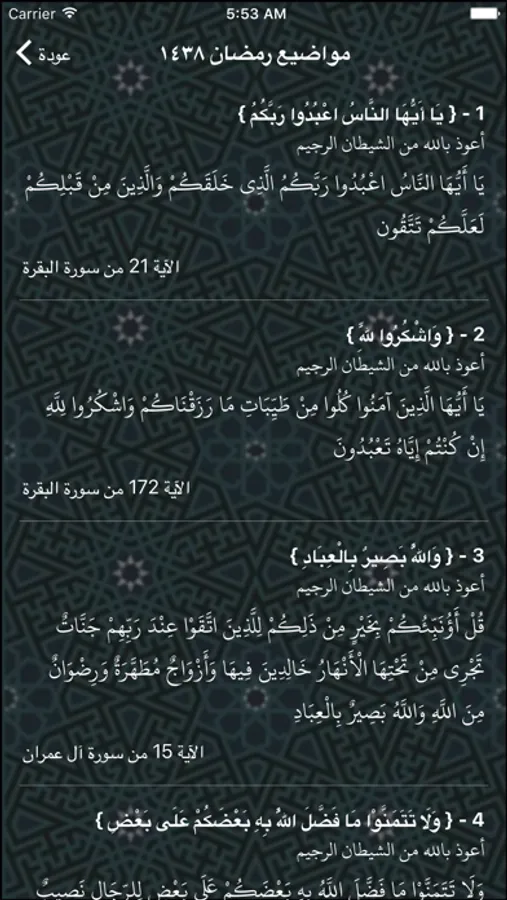 Carrier 5:53 AM
عودة مواضيع رمضان ١٤٣٨
1 - { يَا أَيُّهَا النَّاسُ اعْبُدُوا رَبَّكُمُ }
أعوذ بالله من الشيطان الرجيم
يَا أَيُّهَا النَّاسُ اعْبُدُوا رَبَّكُمُ الَّذِى خَلَقَكُمْ وَالَّذِينَ مِنْ قَبْلِكُمْ
لَعَلَّكُمْ تَتَّقُون
الآية 21 من سورة البقرة
2 - { وَاشْكُرُوا لِلَّهِ }
أعوذ بالله من الشيطَان الرجيم
يَا أَيُّهَا الَّذِينَ آمَنُوا كُلُوا مِنْ طَيِّبَاتِ مَا رَزَقْنَاكُمْ وَاشْكُرُوا لِلَّهِ
إِنْ كُنْتُمْ إِيَّاهُ تَعْبُدُونَ
الآية 172 من سورة البقرة
3 - { وَاللهُ بَصِيرُ بِالْعِبَادِ }
أعوذ بالله من الشيطان الرجيم
قُلْ أَؤُنَبِّئُكُمْ بِخَيْرٍ مِنْ ذَلِكُمْ لِلَّذِينَ اتَّقَوْا عِنْدَ رَبِّهِمْ جَنَّاتٌ
تَجْرِى مِنْ تَحْتِهَا الْأَنْهَارُ خَالِدِينَ فِيهَا وَأَزْوَاجٌ مُطَهَّرَةٌ وَرِضْوَانٌ
مِنَ اللَّهِ وَاللَّهُ بَصِيرٌ بِالْعِبَادِ
الآية 15 من سورة آل عمران
4 - { وَلَا تَتَمَنَّوْا مَا فَضَّلَ اللهُ بِهِ بَعْضَكُمْ عَلَى بَعْضٍ }
أعوذ بالله من الشيطان الرجيم
وَلَا تَتَمَنَّوْا مَا فَضَّلَ اللَّهُ بِهِ بَعْضَكُمْ عَلَى بَعْضٍ لِلرِّجَالِ نَصِيبٌ